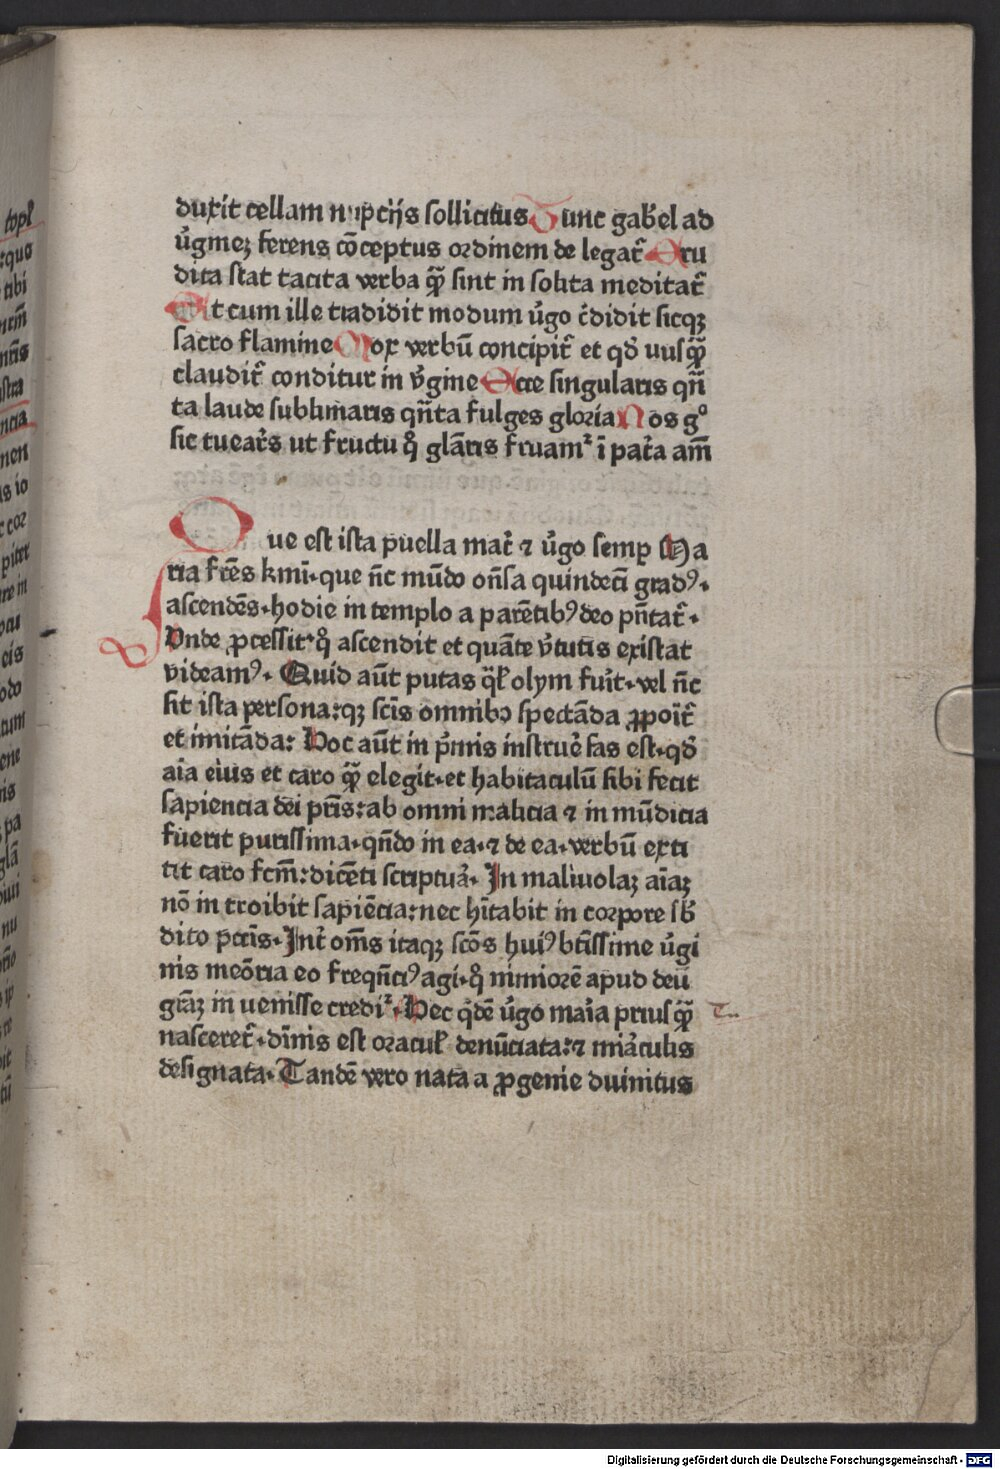 duxit cellam nupcijs sollicitus Tunc gab̄el ad
v̄gineʒ ferens cōceptus ordinem de legat᷑ Eru
dita stat tacita verba q̄ȝ sint in solita meditat᷑
At cum ille tradidit modum v̄go c᷑didit sicqʒ
sacro flamine Mox verbū concipit᷑ et qđ vusq̄ȝ
claudit᷑ conditur in v̄gine Ecce singularis qñ
ta laude sublimaris qñta fulges gloria Nos g°
sic tueat᷑s ut fructu q̊ glāris fruamꝰ ī pat᷑a am̄
Que est ista puella mat᷑ ⁊ v̄go semꝑ Ma
ria fr̄es kmī·que ñc mūdo oñsa quindecī gradꝰ·
ascendēs·hodie in templo a parētibꝰ deo pñtat᷑·
Unde ꝓcessit·q̊ ascendit et quāte v̄tutis existat
videamꝰ· Quid aūt putas q̄ł olym fuīt·vel ñc
sit ista persona:qʒ scīs omnibꝰ spectāda ꝓpoīt᷑
et imitāda: Hoc aūt in p̄mis instrue᷑ fas est·qđ
aīa eius et caro q̄ȝ elegit·et habitaculū sibi fecit
sapiencia dei pr̄is:ab omni malicia ⁊ in mūdicia
fuerit purissima·qñdo in ea·⁊ de ea·verbū exti
tit caro fcm̄:dicēti scriptura᷑· In malivolaʒ aīaʒ
nō in troibit sapiēcia:nec hītabit in corpore sb̄
dito pctīs·Int᷑ om̄s itaqʒ scōs huiꝰ btīssime v̄gi
nis meōria eo freqñciꝰ agi·q̊ nimiorē apud deū
gr̄aʒ in uenisse crediꝰ· Hec q̇dē v̄go maīa priusq̄ȝ
nasceret᷑·dīnis est oracuł denūciata:⁊ mia᷑culis
designata· Tandē vero nata a ꝓgenie diuinitus
Digitalisierung gefördert durch die Deutsche Forschungsgemeinschaft - DFG